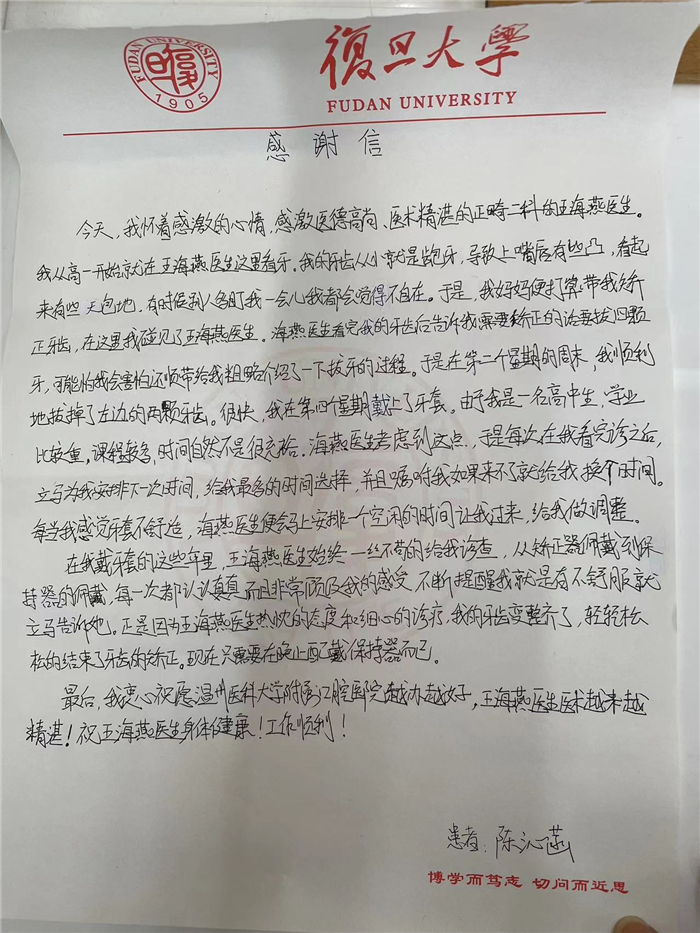 FUDAN UNIVERSITY
1905
復旦大學
FUDAN UNIVERSITY
感谢信
今天，我怀着感激的心情，感激医德高尚、医术精湛的正畸二科的王海燕医生。
我从高一开始就在王海燕医生这里看牙。我的牙齿从小就是龅牙，导致上嘴唇有些凸，看起
来有些天包地，有时候别人多盯我一会儿我都会觉得不自在。于是，我妈妈便打算带我矫
正牙齿，在这里我碰见了王海燕医生。海燕医生看完我的牙齿后告诉我需要矫正的话要拔四颗
牙，可能怕我会害怕还顺带给我粗略介绍了一下拔牙的过程。于是在第二个星期的周末，我顺利
地拔掉了左边的两颗牙齿。很快，我在第四个星期戴上了牙套。由于我是一名高中生，学业
比较重，课程较多，时间自然不是很充裕。海燕医生考虑到这点，于是每次在我看完诊之后，
立马为我安排下一次时间，给我最多的时间选择，并且嘱咐我如果来不了就给我换个时间。
每当我感觉牙套不舒适，海燕医生便会马上安排一个空闲的时间让我过来，给我做调整。
在我戴牙套的这些年里，王海燕医生始终一丝不苟的给我诊查，从矫正器佩戴到保
持器的佩戴，每一次都认认真真，而且非常顾及我的感受，不断提醒我就是有不舒服就
立马告诉她。正是因为王海燕医生热忱的态度和细心的诊疗，我的牙齿变整齐了，轻轻松
松的结束了牙齿的矫正。现在只需要在晚上配戴保持器而已。
最后，我衷心祝愿温州医科大学附属口腔医院越办越好，王海燕医生医术越来越
精湛！祝王海燕医生身体健康！工作顺利！
患者：陈沁菡
博学而笃志 切问而近思